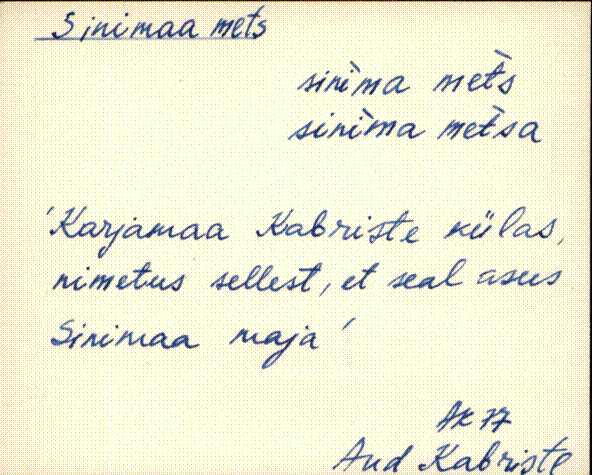 Sinimaa mets
sinìma metš
sinìma metša
'Karjamaa Kabriste külas,
nimetus sellest, et seal asus
Sinimaa maja'
AK 77
Aud Kabriste